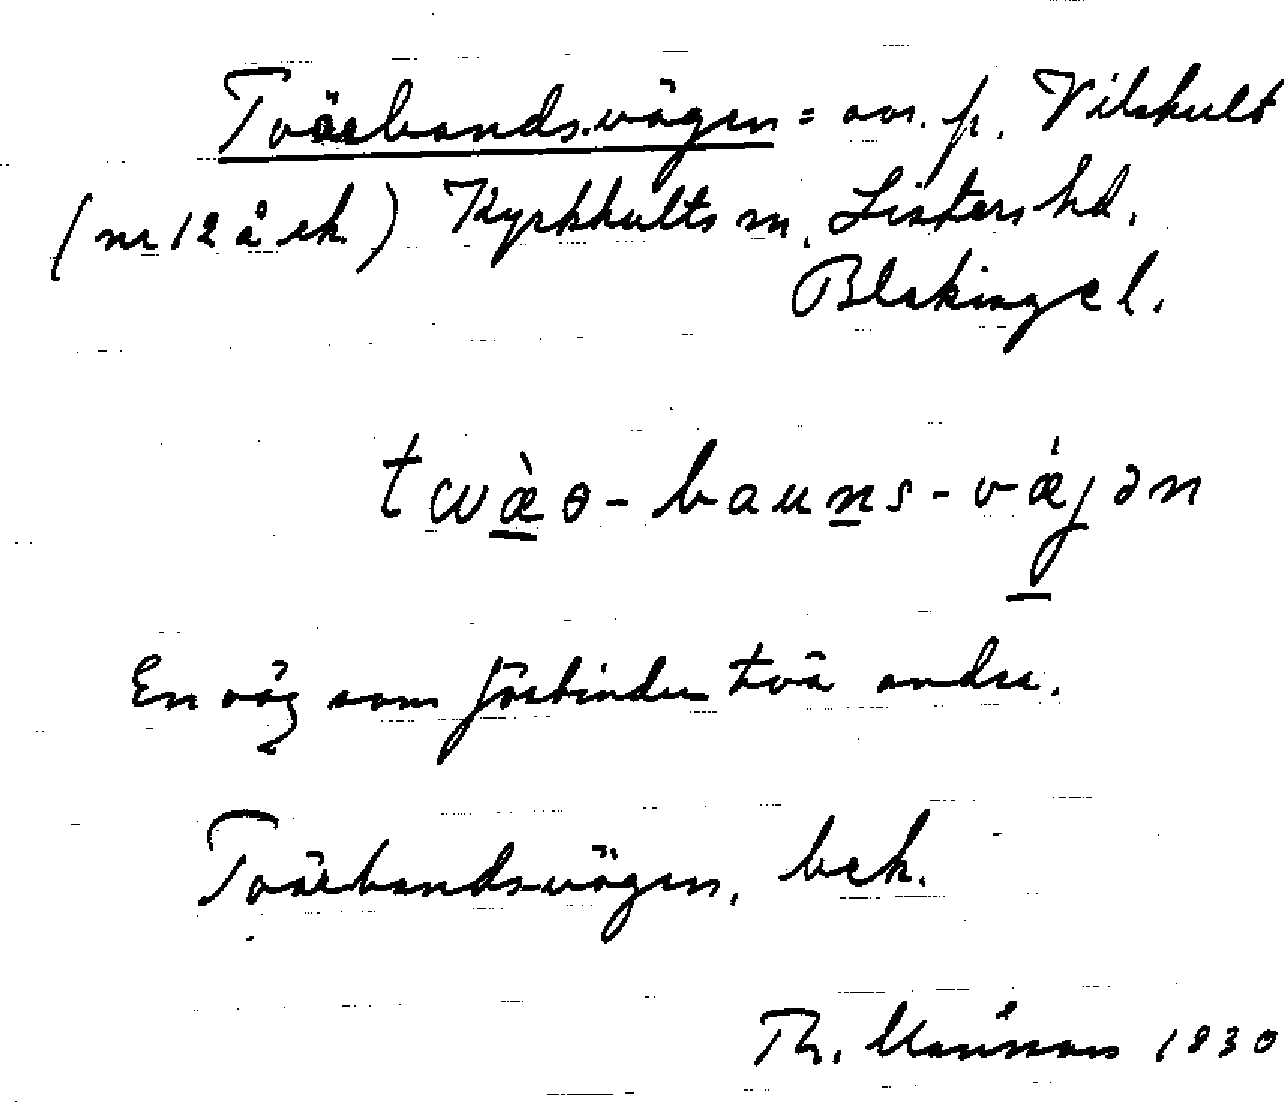 Tvärbandsvägen = avs. p. Vilshult
(nr 12 å ek.) Kyrkhults sn, Listers hd.
Blekinge l.
twæ̀ɵ-bauns-væ̀jən
En väg som förbinder två andra.
Tvärbandsvägen, bek.
Th. 1930